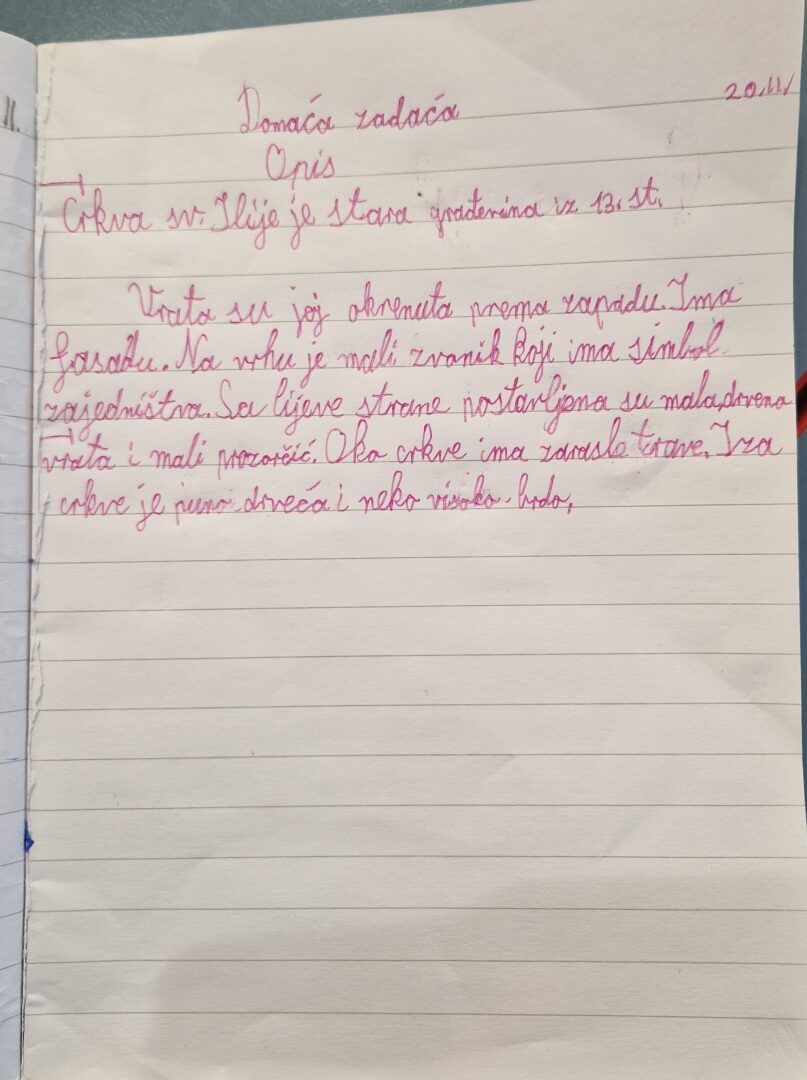 II.
20.11.
Domaća zadaća
Opis
Crkva sv. Ilije je stara građevina iz 13. st.
Vrata su joj okrenuta prema zapadu. Ima
fasadu. Na vrhu je mali zvonik koji ima simbol
zajedništva. Sa lijeve strane postavljena su mala drvena
vrata i mali prozorčić. Oko crkve ima zarasle trave. Iza
crkve je puno drveća i neko visoko brdo.